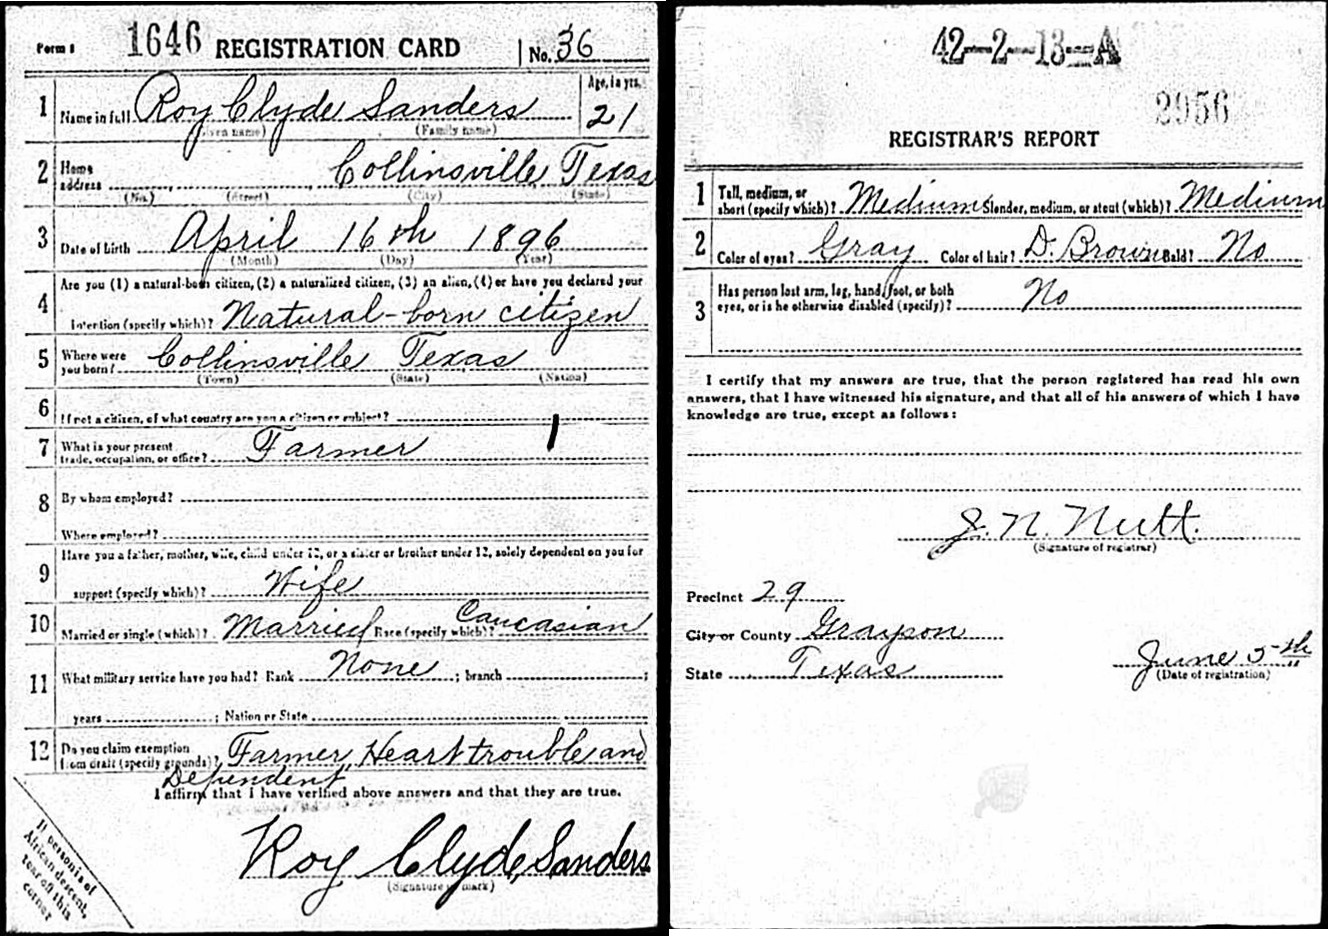 Form 1 1646 REGISTRATION CARD No. 36
1 Name in full Roy Clyde Sanders Age, in yrs. 21
(Given name) (Family name)
2 Home address Collinsville Texas
(No.) (Street) (City) (State)
3 Date of birth April 16th 1896
(Month) (Day) (Year)
4 Are you (1) a natural-born citizen, (2) a naturalized citizen, (3) an alien, (4) or have you declared your
intention (specify which)? Natural-born citizen
5 Where were you born? Collinsville Texas
(Town) (State) (Nation)
6 If not a citizen, of what country are you a citizen or subject?
7 What is your present trade, occupation, or office? Farmer 1
8 By whom employed?
Where employed?
9 Have you a father, mother, wife, child under 12, or a sister or brother under 12, solely dependent on you for
support (specify which)? Wife
10 Married or single (which)? Married Race (specify which)? Caucasian
11 What military service have you had? Rank None ; branch ;
years ; Nation or State
12 Do you claim exemption from draft (specify grounds)? Farmer, Heart trouble and
Dependent
I affirm that I have verified above answers and that they are true.
Roy Clyde Sanders
(Signature or mark)
If person is of
African descent,
tear off this
corner
42-2-13-A
2956
REGISTRAR'S REPORT
1 Tall, medium, or short (specify which)? Medium Slender, medium, or stout (which)? Medium
2 Color of eyes? Gray Color of hair? D. Brown Bald? No
3 Has person lost arm, leg, hand, foot, or both
eyes, or is he otherwise disabled (specify)? No
I certify that my answers are true, that the person registered has read his own
answers, that I have witnessed his signature, and that all of his answers of which I have
knowledge are true, except as follows:
J. N. Nutt.
(Signature of registrar)
Precinct 29
City or County Grayson
State Texas June 5th
(Date of registration)